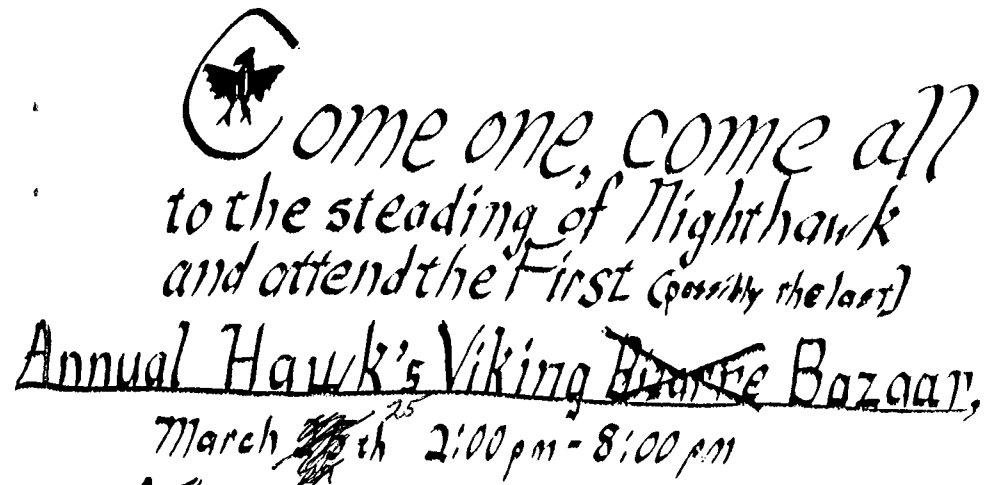 Come one, come all
to the steading of Nighthawk
and attend the First (possibly the last)
Annual Hawk's Viking Bizarre Bazaar,
March 25th 2:00 pm - 8:00 pm